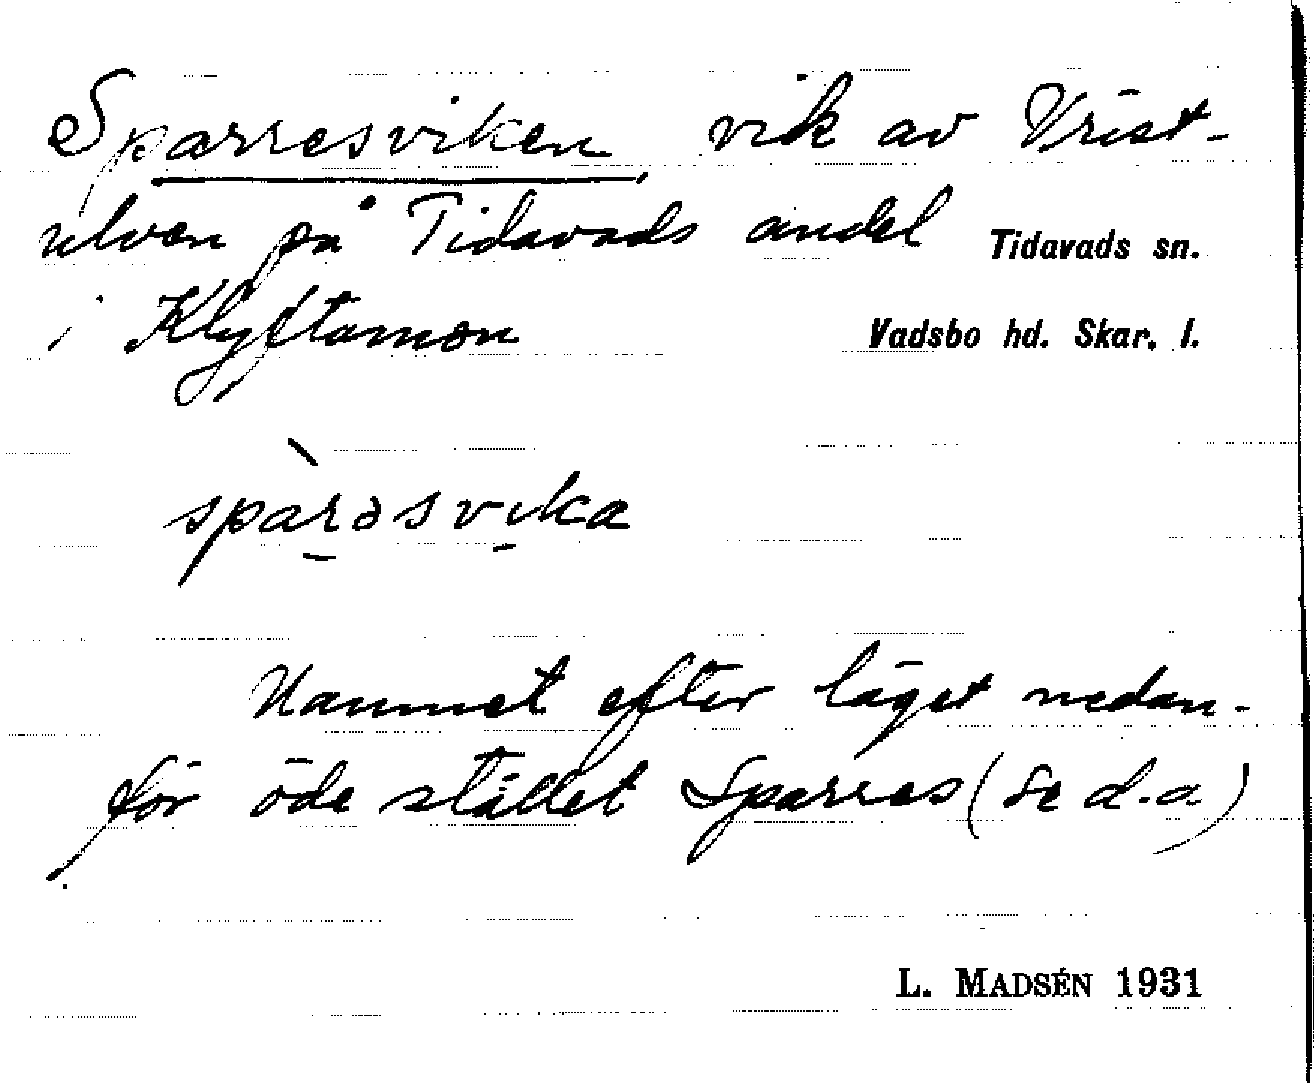 Sparresviken, vik av Vrist-
ulven på Tidavads andel
Tidavads sn.
i Klyftamon
Vadsbo hd. Skar. l.
spàrəsvika
Namnet efter läget nedan-
för öde stället Sparres (se d.o.)
L. MADSÉN 1931